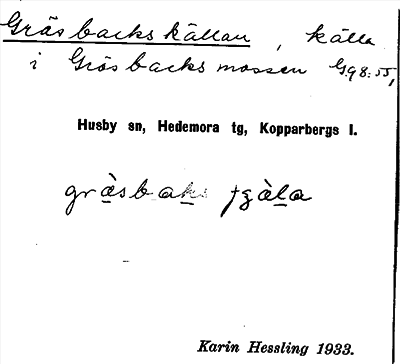 Gräsbackskällan, källa
i Gräsbacksmossen G98:55,
Husby sn, Hedemora tg, Kopparbergs l.
gràsbaks
Karin Hessling 1933.